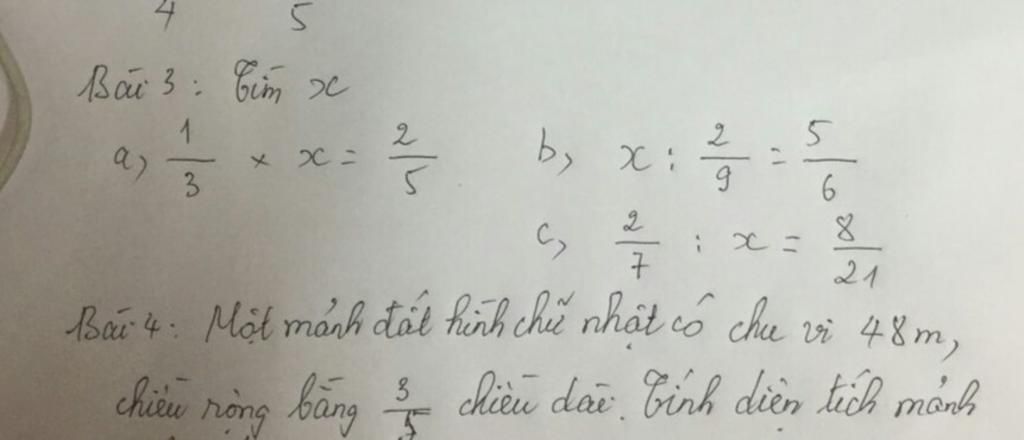 4 5
Bài 3: Tìm x
a, 1/3 × x = 2/5 b, x : 2/9 = 5/6
c, 2/7 : x = 8/21
Bài 4: Một mảnh đất hình chữ nhật có chu vi 48m,
chiều rộng bằng 3/5 chiều dài. Tính diện tích mảnh